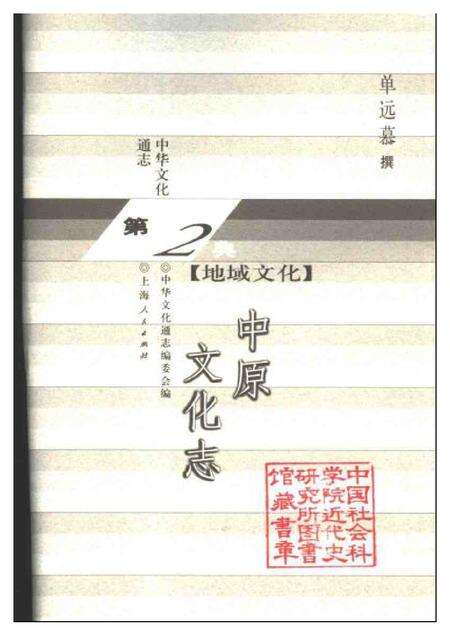 单远慕 撰
中华文化
通志
第2典
【地域文化】
中原
文化志
◎中华文化通志编委会编
◎上海人民出版社
中国社会科
学院近代史
研究所图书
馆藏书章